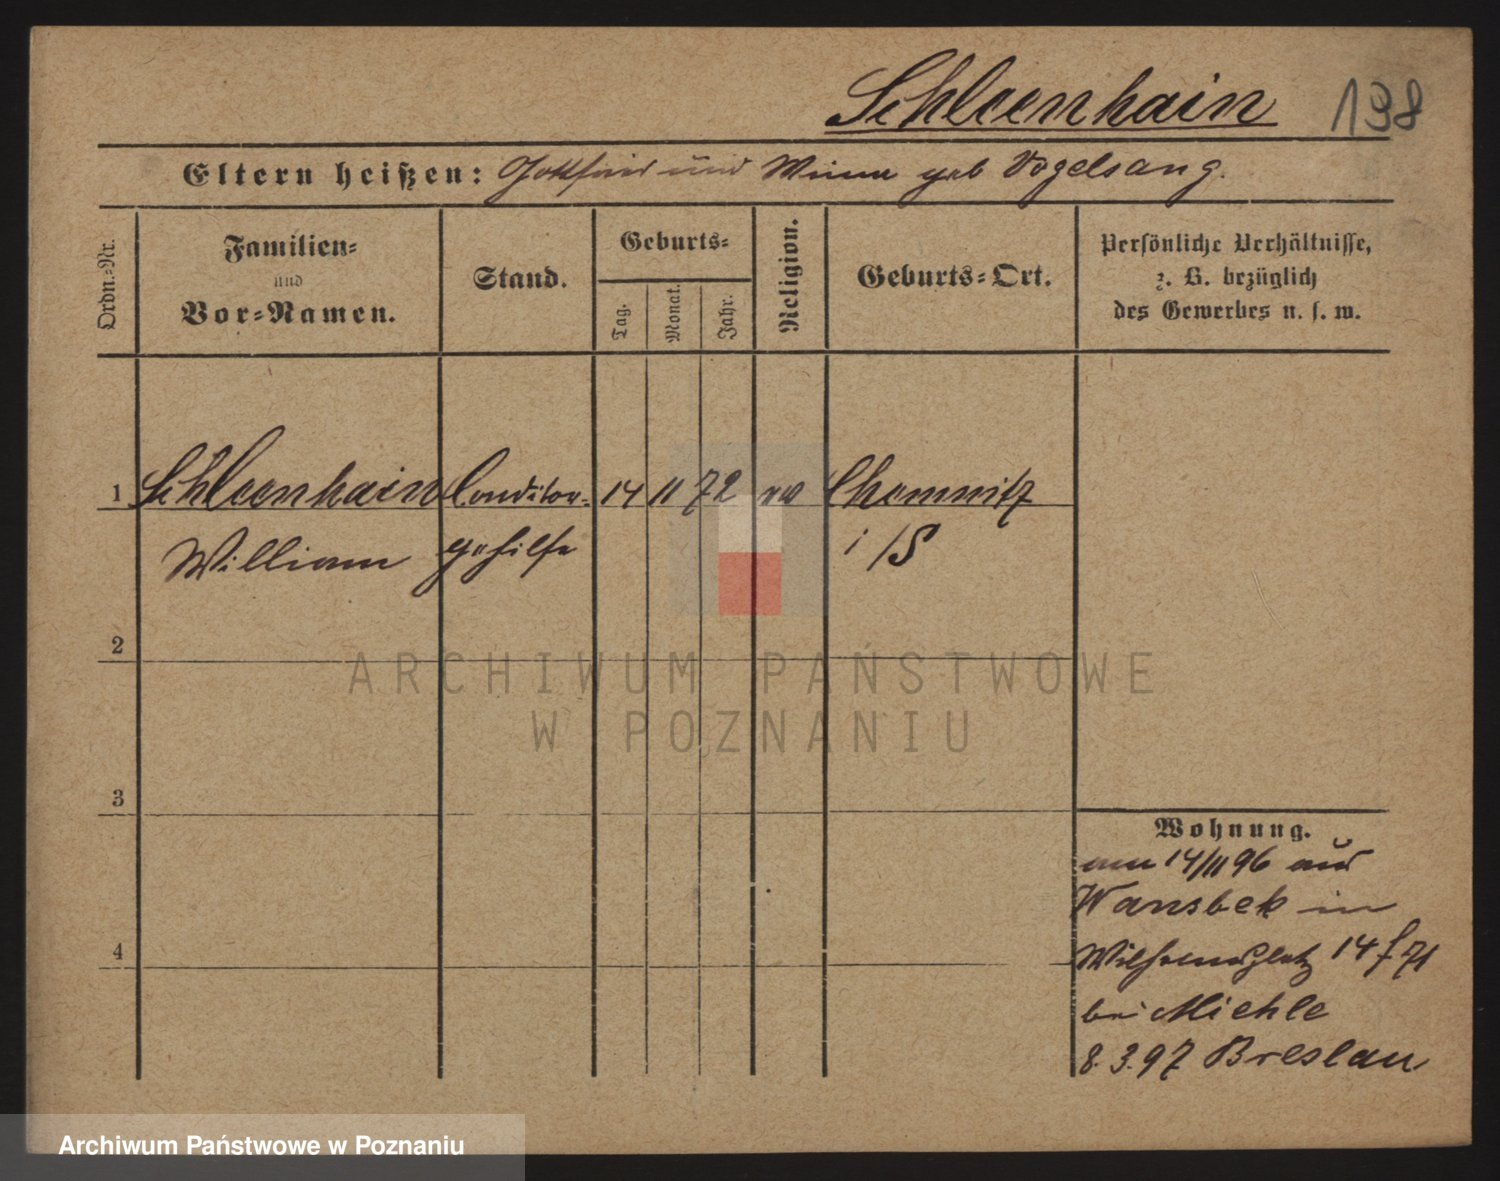 Schleenhain 198
Eltern heißen: Gottfried und Minna geb Vogelsang.
Ordn.-Nr.
Familien-
und
Vor-Namen.
Stand.
Geburts-
Tag.
Monat.
Jahr.
Religion.
Geburts-Ort.
Persönliche Verhältnisse,
z. B. bezüglich
des Gewerbes u. s. w.
1 Schleenhain Conditor- 14 11 72 ev Chemnitz
William gehilfe i/S
2
3
4
Wohnung.
am 14/11 96 aus
Wansbek in
Wilhelmsplatz 14
bei Miehle
8.3.97 Breslau
ARCHIWUM PAŃSTWOWE
W POZNANIU
Archiwum Państwowe w Poznaniu